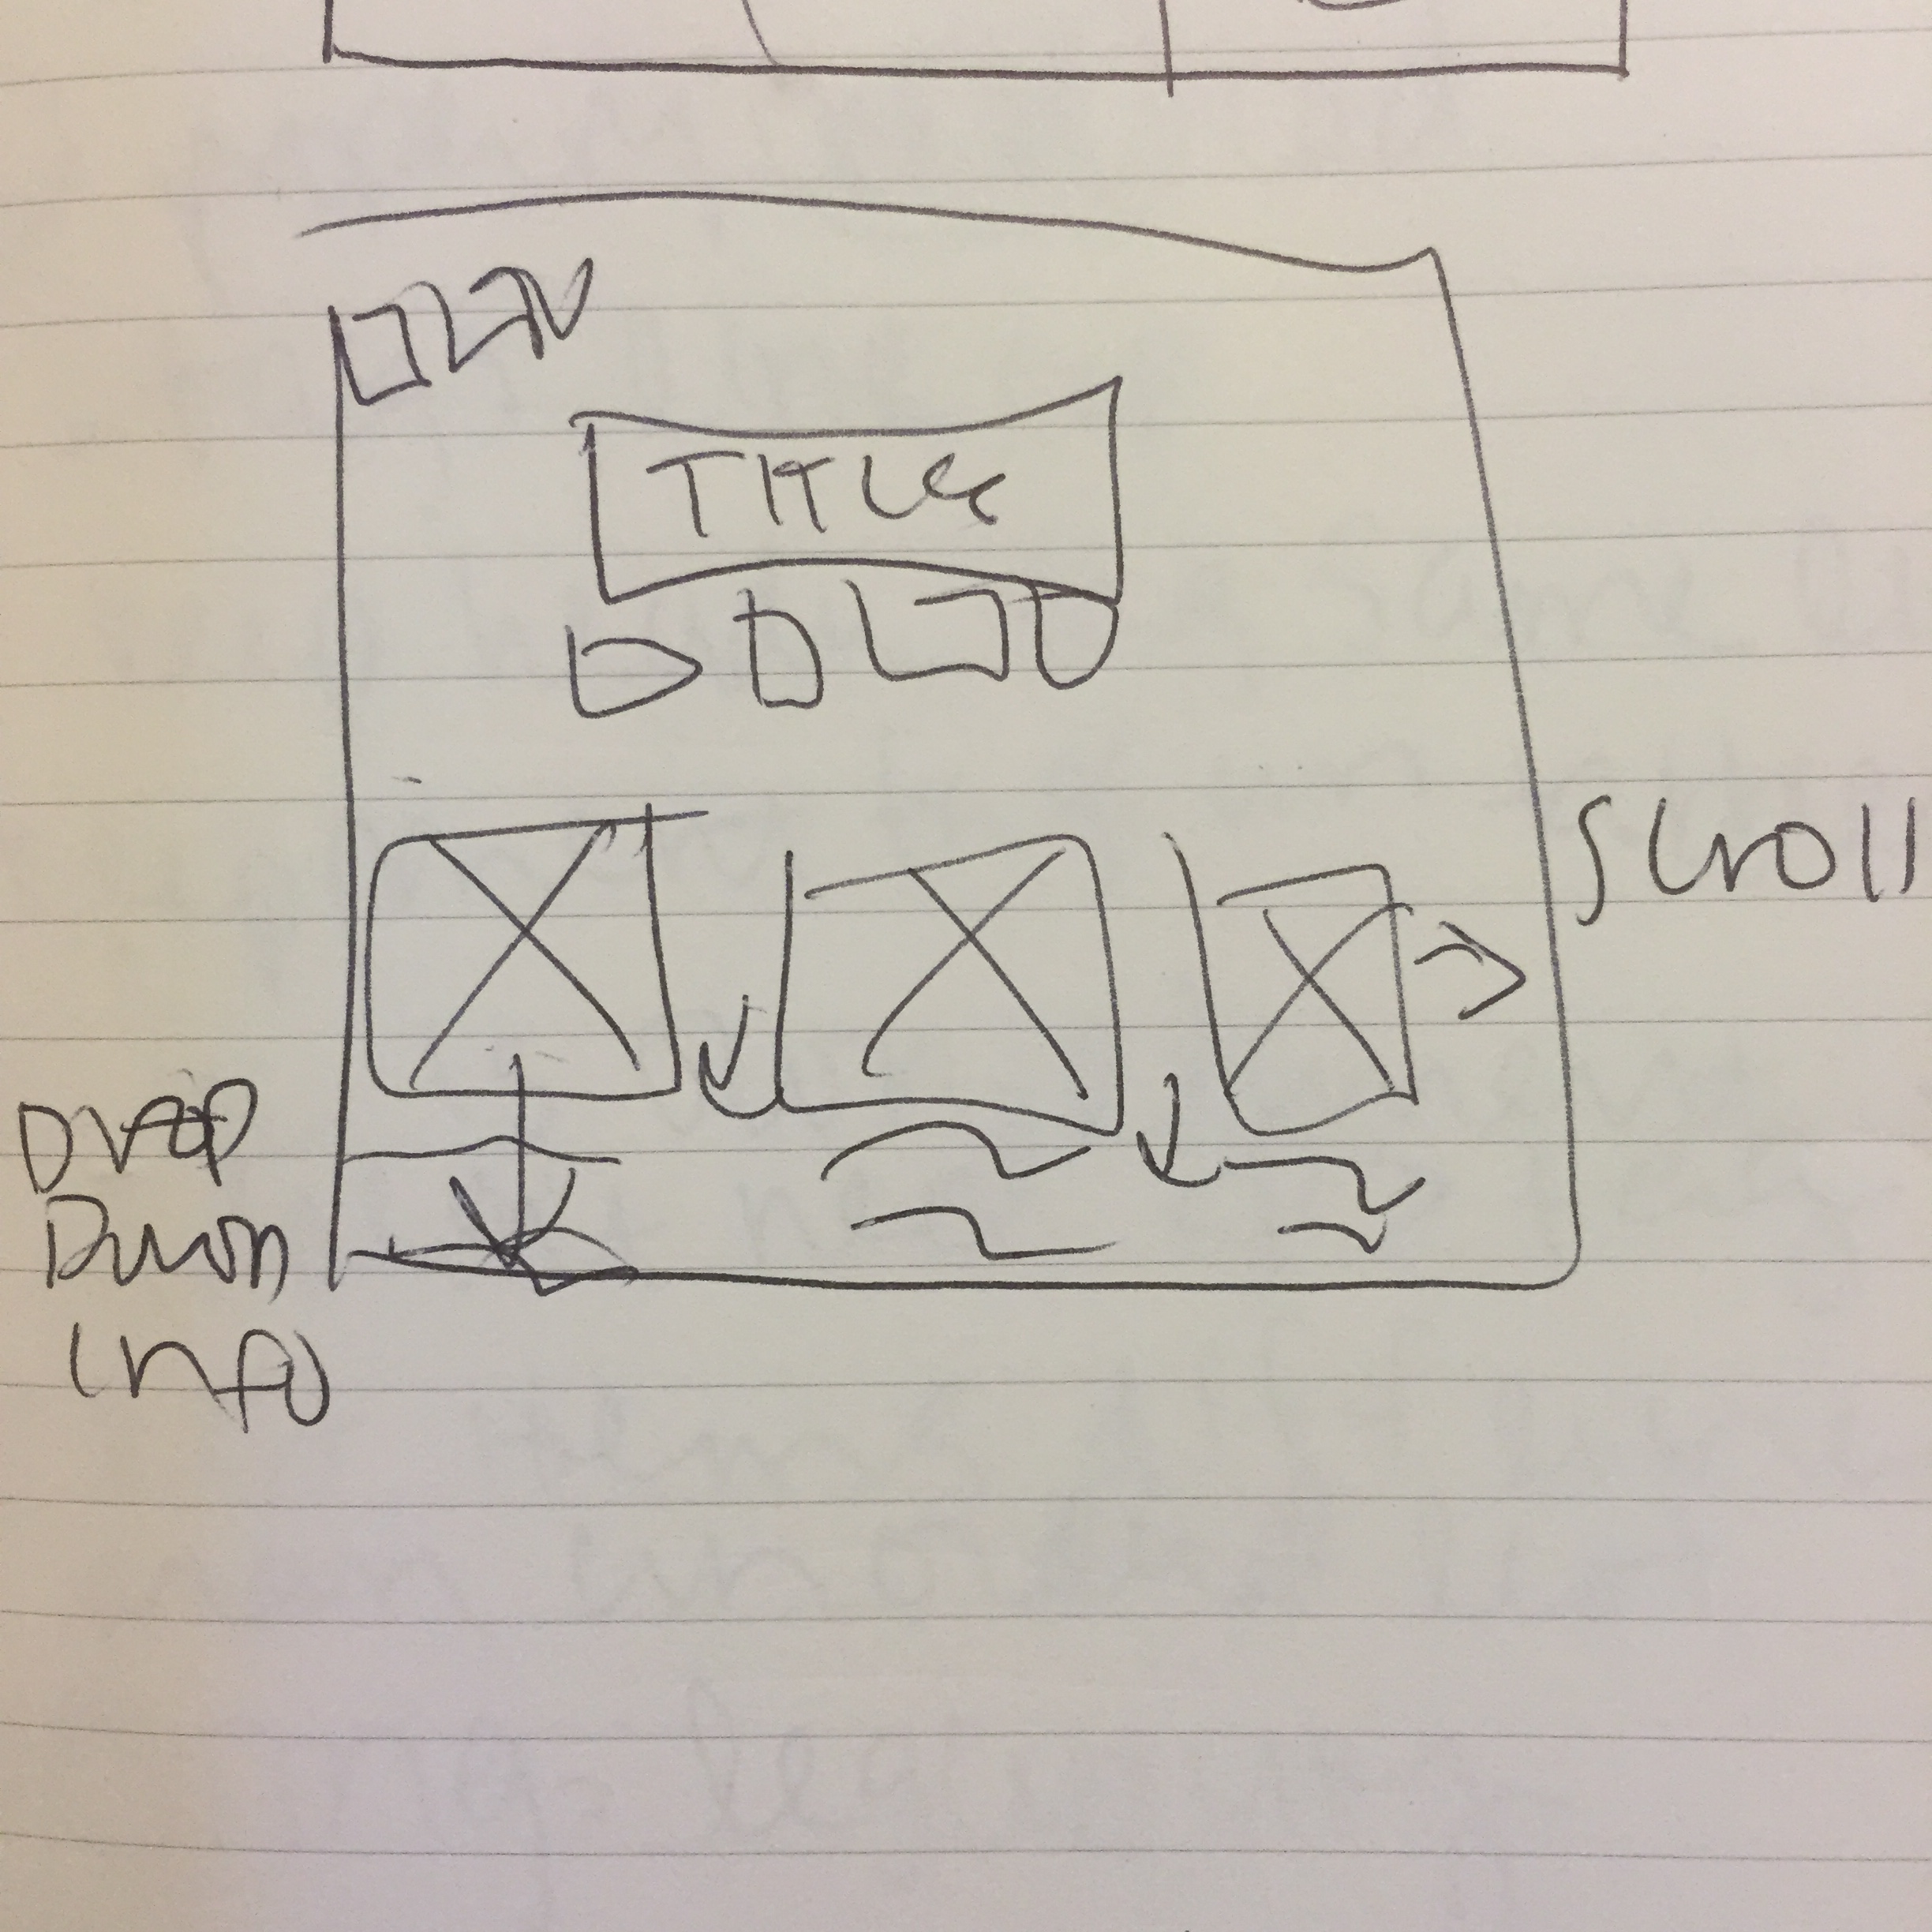 TITLE
Scroll
Drop
Down
info